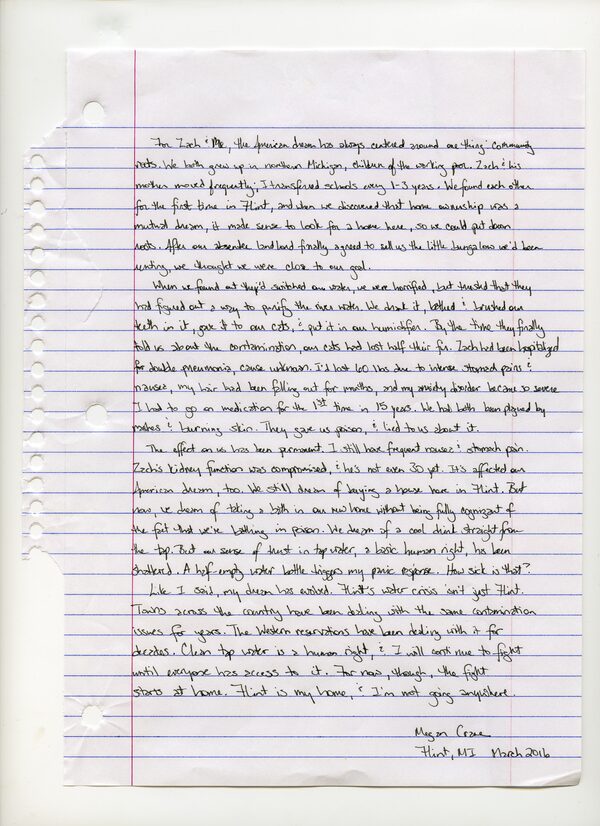 For Zach & Me, the American dream has always centered around one thing: community
roots. We both grew up in northern Michigan, children of the working poor. Zach & his
mother moved frequently; I transferred schools every 1-3 years. We found each other
for the first time in Flint, and when we discovered that home ownership was a
mutual dream, it made sense to look for a home here, so we could put down
roots. After our absentee landlord finally agreed to sell us the little bungalow we'd been
renting, we thought we were close to our goal.
When we found out they'd switched our water, we were horrified, but trusted that they
had figured out a way to purify the river water. We drank it, bathed & brushed our
teeth in it, gave it to our cats, & put it in our humidifier. By the time they finally
told us about the contamination, our cats had lost half their fur. Zach had been hospitalized
for double pneumonia, cause unknown. I'd lost 60 lbs due to intense stomach pains &
nausea, my hair had been falling out for months, and my anxiety disorder became so severe
I had to go on medication for the 1st time in 15 years. We had both been plagued by
rashes & burning skin. They gave us poison, & lied to us about it.
The effect on us has been permanent. I still have frequent nausea & stomach pain.
Zach's kidney function was compromised, & he's not even 30 yet. It's affected our
American dream, too. We still dream of buying a house here in Flint. But
now, we dream of taking a bath in our new home without being fully cognizant of
the fact that we're bathing in poison. We dream of a cool drink straight from
the tap. But our sense of trust in tap water, a basic human right, has been
shattered. A half-empty water bottle triggers my panic response. How sick is that?
Like I said, my dream has evolved. Flint's water crisis isn't just Flint.
Towns across the country have been dealing with the same contamination
issues for years. The Western reservations have been dealing with it for
decades. Clean tap water is a human right, & I will continue to fight
until everyone has access to it. For now, though, the fight
starts at home. Flint is my home, & I'm not going anywhere.
Megan Crane
Flint, MI March 2016